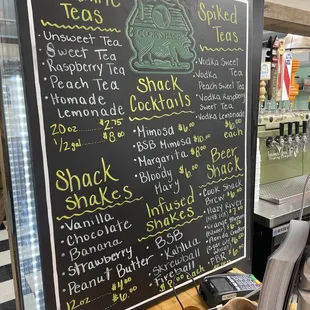 Teas
Unsweet Tea
Sweet Tea
Raspberry Tea
Peach Tea
Homade
Lemonade
20 oz ...... $2.75
1/2 gal ...... $8.00
Shack
Shakes
Vanilla
Chocolate
Banana
Strawberry
Peanut Butter
12oz ...... $4.00
$6.00
Shack
Cocktails
Mimosa $6.00
BSB Mimosa $10.00
Margarita $8.00
Bloody
Mary $6.00
Infused
Shakes
BSB
Kahlua
Skrewball
Fireball
$8.00 each
Spiked
Teas
Vodka Sweet
Tea
Vodka
Peach Sweet Tea
Vodka Raspberry
Sweet Tea
Vodka Lemonade
$6.00
each
Beer
Shack
Cook Shack
Brew $6.00
Hazy River
PBR